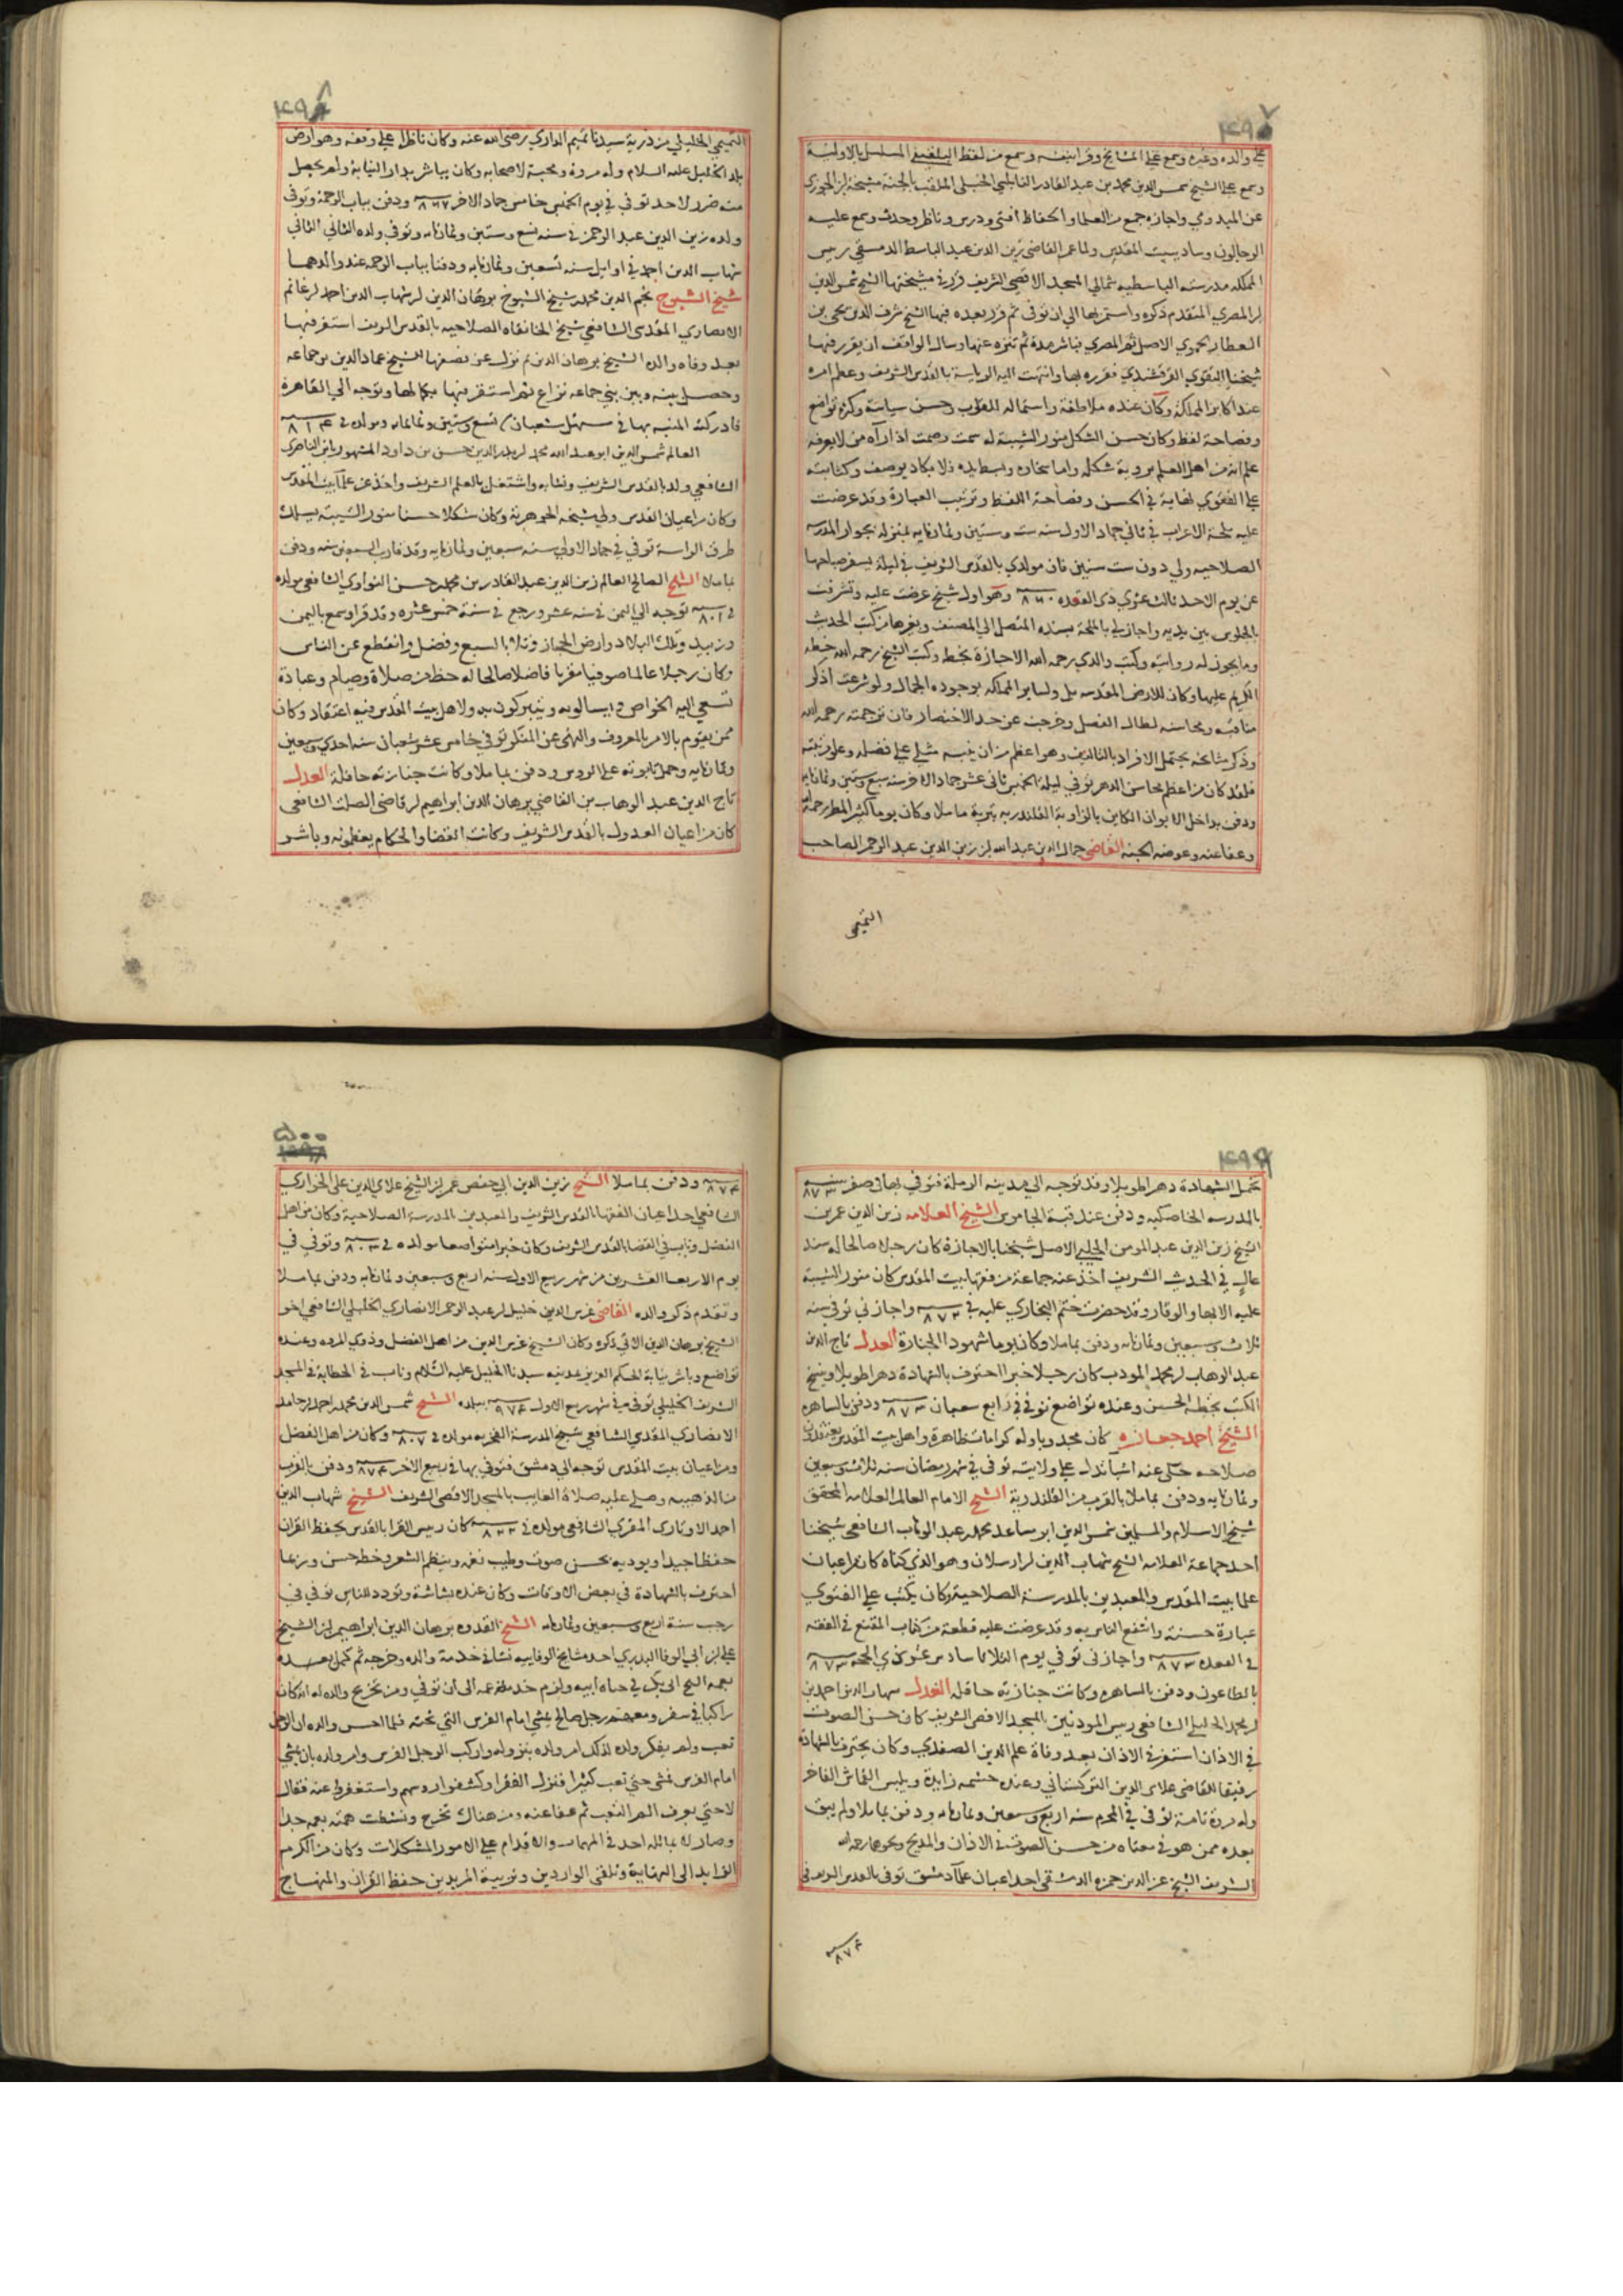 ٤٩٧
على والده وغيره وسمع على المشايخ وقرا بنفسه وسمع من لفظ البلقيني المسلسل بالاولية
وسمع على الشيخ شمس الدين محمد بن عبد القادر النابلسي الحنبلي الملقب بالجنة مشيخة ابن الجوزي
عن الميدومي واجازه جمع من العلما والحفاظ افتى ودرس وناظر وحدث وسمع عليه
الرحالون وساد ببيت المقدس ولما عمر القاضي زين الدين عبد الباسط الدمشقي رييس
المملكه مدرسته الباسطيه شمالي المسجد الاقصى الشريف قرر في مشيختها الشيخ شمس الدين
ابن المصري المتقدم ذكره واستمر بها الى ان توفي ثم قرر بعده فيها الشيخ شرف الدين يحيى بن
العطار الحموي الاصل ثم المصري فباشر مدة ثم تنزه عنها وسال الواقف ان يقرر فيها
شيخنا التقوي القرقشندي فقرره بها وانتهت اليه الرياسة بالقدس الشريف وعظم امره
عند اكابر المملكة وكان عنده ملاطفة واستمالة للقلوب وحسن سياسة وكثرة تواضع
وفصاحة لفظ وكان حسن الشكل منور الشيبة له سمت وصمت اذا راه من لا يعرفه
علم انه من اهل العلم برويه شكله واما سخاوه وبسط يده فلا يكاد يوصف وكتابته
على الفتوى نهاية في الحسن وفصاحة اللفظ وترتيب العبارة وقد عرضت
عليه ملحة الاعراب في ثاني جماد الاول سنه ست وستين وثمانمايه بمنزله بجوار المدرسه
الصلاحيه ولي دون ست سنين فان مولدي بالقدس الشريف في ليلة يسفر صباحها
عن يوم الاحد ثالث عشري ذي القعده سنه ٨٦٠ وهو اول شيخ عرضت عليه وتشرفت
بالجلوس بين يديه واجازني بالملحة بسنده المتصل الى المصنف وبغيرها من كتب الحديث
وما يجوز له روايته وكتب والدي رحمه الله الاجازة بخطه وكتب الشيخ رحمه الله خطه
الكريم عليها وكان للارض المقدسه بل ولساير المملكه بوجوده الجمال ولو شرعت اذكر
مناقبه ومحاسنه لطال الفصل وخرجت عن حد الاختصار فان ترجمته رحمه الله
وذكر مشايخه يحتمل الافراد بالتاليف وهو اعظم من ان ينبه مثلي على فضله وعلو رتبته
فلقد كان من اعظم محاسن الدهر توفي ليلة الخميس ثاني عشر جماد الاخر سنه سبع وستين وثمانمايه
ودفن بداخل الايوان الكاين بالزاوية القلندريه بتربة ماملا وكان يوما كثير المطر رحمه الله
وعفا عنه وعوضه الجنه القاضي جمال الدين عبد الله بن زين الدين عبد الرحمن الصاحب
التميمي
٤٩٨
التميمي الخليلي من ذرية سيدنا تميم الداري رضي الله عنه وكان ناظرا على وقفه وهو ارض
بلد الخليل عليه السلام وله مروة ومحبة لاصحابه وكان يباشر بدار النيابة ولم يحصل
منه ضرر لاحد توفي في يوم الخميس خامس جماد الاخر سنه ٨٦٧ ودفن بباب الرحمة وتوفي
ولده زين الدين عبد الرحمن في سنه تسع وستين وثمانمايه وتوفي ولده الثاني الثاني
شهاب الدين احمد في اوايل سنه تسعين وثمانمايه ودفنا بباب الرحمه عند والدهما
شيخ الشيوخ نجم الدين محمد بن شيخ الشيوخ برهان الدين بن شهاب الدين احمد بن غانم
الانصاري المقدسي الشافعي شيخ الخانقاه الصلاحيه بالقدس الشريف استقر فيها
بعد وفاه والده الشيخ برهان الدين ثم نزل عن نصفها للشيخ عماد الدين بن جماعه
وحصل بينه وبين بني جماعه نزاع ثم استقر فيها بكمالها وتوجه الى القاهرة
فادركته المنيه بها في مستهل شعبان سنه تسع وستين وثمانمايه ومولده في سنه ٨١٤
العالم شمس الدين ابو عبد الله محمد بن بدر الدين حسن بن داود المشهور بابن الناصري
الشافعي ولد بالقدس الشريف ونشا به واشتغل بالعلم الشريف واخذ عن علما بيت المقدس
وكان من اعيان القدس وولي مشيخه الجوهريه وكان شكلا حسنا منور الشيبة يسلك
طرق الرياسة توفي في جماد الاولى سنه سبعين وثمانمايه وقد قارب السبعين سنه ودفن
بماملا الشيخ الصالح العالم زين الدين عبد القادر بن محمد بن حسن النواوي الشافعي مولده
في سنه ٨٠١ توجه الى اليمن في سنه عشر ورجع في سنة خمس عشره وقد قرا وسمع باليمن
وزبيد وتلك البلاد وارض الحجاز وتلا بالسبع وفضل وانقطع عن الناس
وكان رجلا عالما صوفيا مقريا فاضلا صالحا له حظ من صلاة وصيام وعبادة
تسعى اليه الخواص ويسالونه ويتبركون به ولاهل بيت المقدس فيه اعتقاد وكان
ممن يقوم بالامر بالمعروف والنهي عن المنكر توفي خامس عشر شعبان سنه احدي وسبعين
وثمانمايه وحمل تابوته على الروس ودفن بماملا وكانت جنازته حافلة العدل
تاج الدين عبد الوهاب بن القاضي برهان الدين ابراهيم بن قاضي الصلت الشافعي
كان من اعيان العدول بالقدس الشريف وكانت القضا والحكام يعظمونه وباشر
٤٩٩
تحمل الشهادة دهرا طويلا وقد توجه الى مدينه الرملة فتوفي بها في صفر سنه ٨٧٣
بالمدرسه الخاصكيه ودفن عند قبة الجاموس الشيخ العلامه زين الدين عمر بن
الشيخ زين الدين عبد المومن الحلبي الاصل شيخنا بالاجازة كان رجلا صالحا له سند
عال في الحديث الشريف اخذ عنه جماعة من فقها بيت المقدس كان منور الشيبة
عليه الابها والوقار وقد حضرت ختم البخاري عليه في سنه ٨٧٢ واجازني توفي سنه
ثلاث وسبعين وثمانمايه ودفن بماملا وكان يوما مشهود الجنازة العدل تاج الدين
عبد الوهاب بن محمد المودب كان رجلا خيرا احترف بالشهادة دهرا طويلا وينسخ
الكتب بخطه الحسن وعنده تواضع توفي في رابع شعبان سنه ٨٧٣ ودفن بالساهره
الشيخ احمد جعاره كان مجذوبا وله كرامات ظاهرة واهل بيت المقدس يعتقدون
صلاحه حكي عنه اشيا تدل على ولايته توفي في شهر رمضان سنه ثلاث وسبعين
وثمانمايه ودفن بماملا بالقرب من القلندرية الشيخ الامام العالم العلامه المحقق
شيخ الاسلام والمسلمين شمس الدين ابو مساعد محمد بن عبد الوهاب الشافعي شيخنا
احد جماعة العلامه الشيخ شهاب الدين بن ارسلان وهو الذي كناه كان من اعيان
علما بيت المقدس والمعيدين بالمدرسة الصلاحية وكان يكتب على الفتوى
عبارة حسنة وانتفع الناس به وقد عرضت عليه قطعة من كتاب المقنع في الفقه
في القعده سنه ٨٧٣ واجازني توفي يوم الثلاثا سادس عشري ذي الحجه سنه ٨٧٣
بالطاعون ودفن بالساهره وكانت جنازته حافله العدل شهاب الدين احمد بن
محمد الخليلي الشافعي رييس الموذنين بالمسجد الاقصى الشريف كان حسن الصوت
في الاذان استقر في الاذان بعد وفاة علم الدين الصفدي وكان يحترف بالشهادة
رفيقا للقاضي علاي الدين التركستاني وعنده حشمه زايدة ويلبس القماش الفاخر
وله مروة تامة توفي في المحرم سنه اربع وسبعين وثمانمايه ودفن بماملا ولم يبق
بعده ممن هو في معناه من حسن الصوت في الاذان والمديح ونحوها رحمه الله
الشريف الشيخ عز الدين حمزه الدمشقي احد اعيان علما دمشق توفي بالقدس الشريف في
سنه ٨٧٤
٥٠٠
سنه ٨٧٤ ودفن بماملا الشيخ زين الدين ابي حفص عمر بن الشيخ علاي الدين علي الحواري
الشافعي احد اعيان الفقها بالقدس الشريف والمعيدين بالمدرسة الصلاحية وكان من اهل
الفضل وناب في القضا بالقدس الشريف وكان خيرا متواضعا مولده في سنه ٨٠٣ وتوفي في
يوم الاربعا العشرين من شهر ربيع الاول سنه اربع وسبعين وثمانمايه ودفن بماملا
وتقدم ذكر والده القاضي غرس الدين خليل بن عبد الرحمن الانصاري الخليلي الشافعي اخو
الشيخ برهان الدين الاتي ذكره وكان الشيخ غرس الدين من اهل الفضل وذوي المروه وعنده
تواضع وباشر نيابة الحكم العزيز بمدينه سيدنا الخليل عليه السلام وناب في الخطابة في المسجد
الشريف الخليلي توفي في شهر ربيع الاول سنه ٩٧٤ ببلده الشيخ شمس الدين محمد بن احمد بن حامد
الانصاري المقدسي الشافعي شيخ المدرسة الفخريه مولده في سنه ٨٠٧ وكان من اهل الفضل
ومن اعيان بيت المقدس توجه الى دمشق فتوفي بها في ربيع الاخر سنه ٨٧٤ ودفن بالقرب
من الذهبيه وصلي عليه صلاة الغايب بالمسجد الاقصى الشريف الشيخ شهاب الدين
احمد المقري الشافعي مولده في سنه ٨٢٢ كان رييس القرا بالقدس يحفظ القران
حفظا جيدا ويوديه بحسن صوت وطيب نغمه وينظم الشعر وخطه حسن وربما
احترف بالشهادة في بعض الاوقات وكان عنده بشاشة وتودد للناس توفي في
رجب سنة اربع وسبعين وثمانمايه الشيخ القدوه برهان الدين ابراهيم بن الشيخ
علي بن ابي الوفا البدري احد مشايخ الوفاييه نشا في خدمة والده وخرجه ثم كمل بعده
بعمه الشيخ ابي بكر في حياه ابيه ولزم خدمة عمه الى ان توفي ومن تخريج والده له انه كان
راكبا في سفر ومعه رجل صالح يمشي امام الفرس التي تحته فلما احس والده ان الرجل
تعب ولم يفكر ولده لذلك امر ولده بنزوله واركب الرجل الفرس وامر ولده بان يمشي
امام الفرس فمشى حتى تعب كثيرا فنزل الفقرا وكشفوا روسهم واستغفروا عنه فقال
لا حتى يعرف الم التعب ثم عفا عنه ومن هناك تخرج ونشطت همته بعمه جدا
وصار لا يماثله احد في المهمات والاقدام على الامور المشكلات وكان من الكرم
الزايد الى النهاية وتلقى الواردين وتربية المريدين حفظ القران والمنهاج